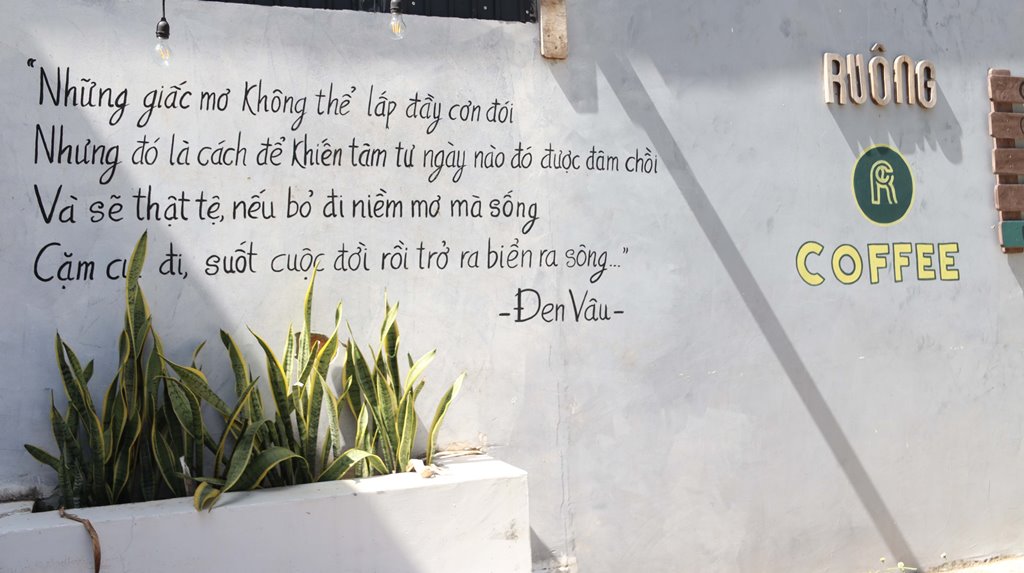 "Những giấc mơ Không thể lấp đầy cơn đói
Nhưng đó là cách để Khiến tâm tư ngày nào đó được đâm chồi
Và sẽ thật tệ, nếu bỏ đi niềm mơ mà sống
Cặm đi, suốt cuộc đời rồi trở ra biển ra sông..."
-Đen Vâu-
RUÔNG
COFFEE